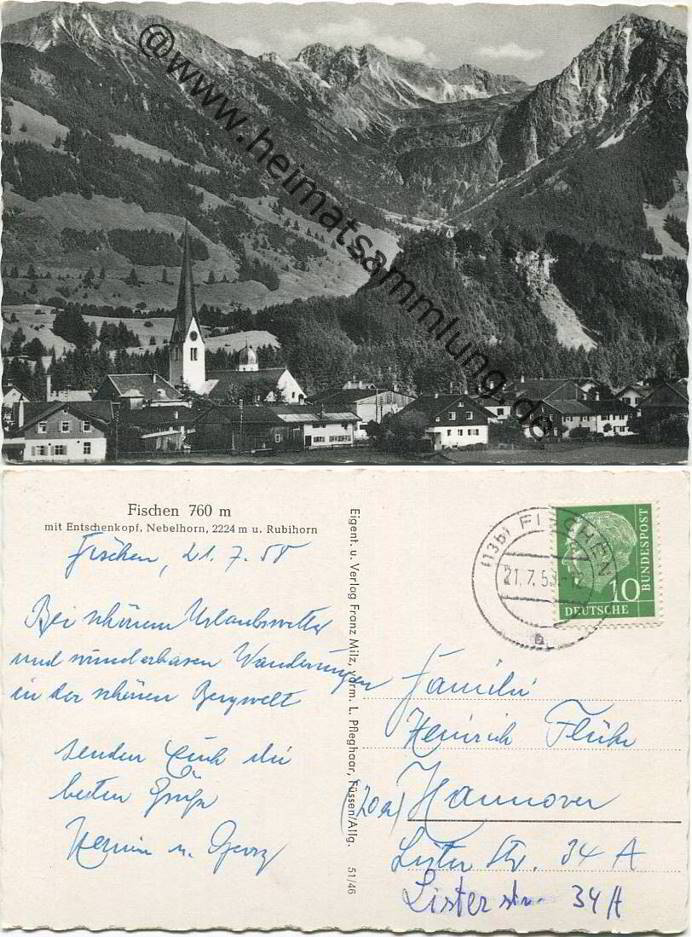 @www.heimatsammlung.de
Fischen 760 m
mit Entschenkopf, Nebelhorn, 2224 m u. Rubihorn
Fischen, 21.7.
Bei schönem Urlaubswetter
und wunderbaren Wanderungen
in der schönen Bergwelt
senden Euch die
besten Grüße
u. Georg
Eigent. u. Verlag Franz Milz, vorm. L. Pfleghaar, Füssen/Allg. 51/46
(13b) FISCHEN
21. 7. 5
a
10
DEUTSCHE
BUNDESPOST
Familie
Heinrich
(20a) Hannover
Lister Str. 34 A
Lister str. 34A